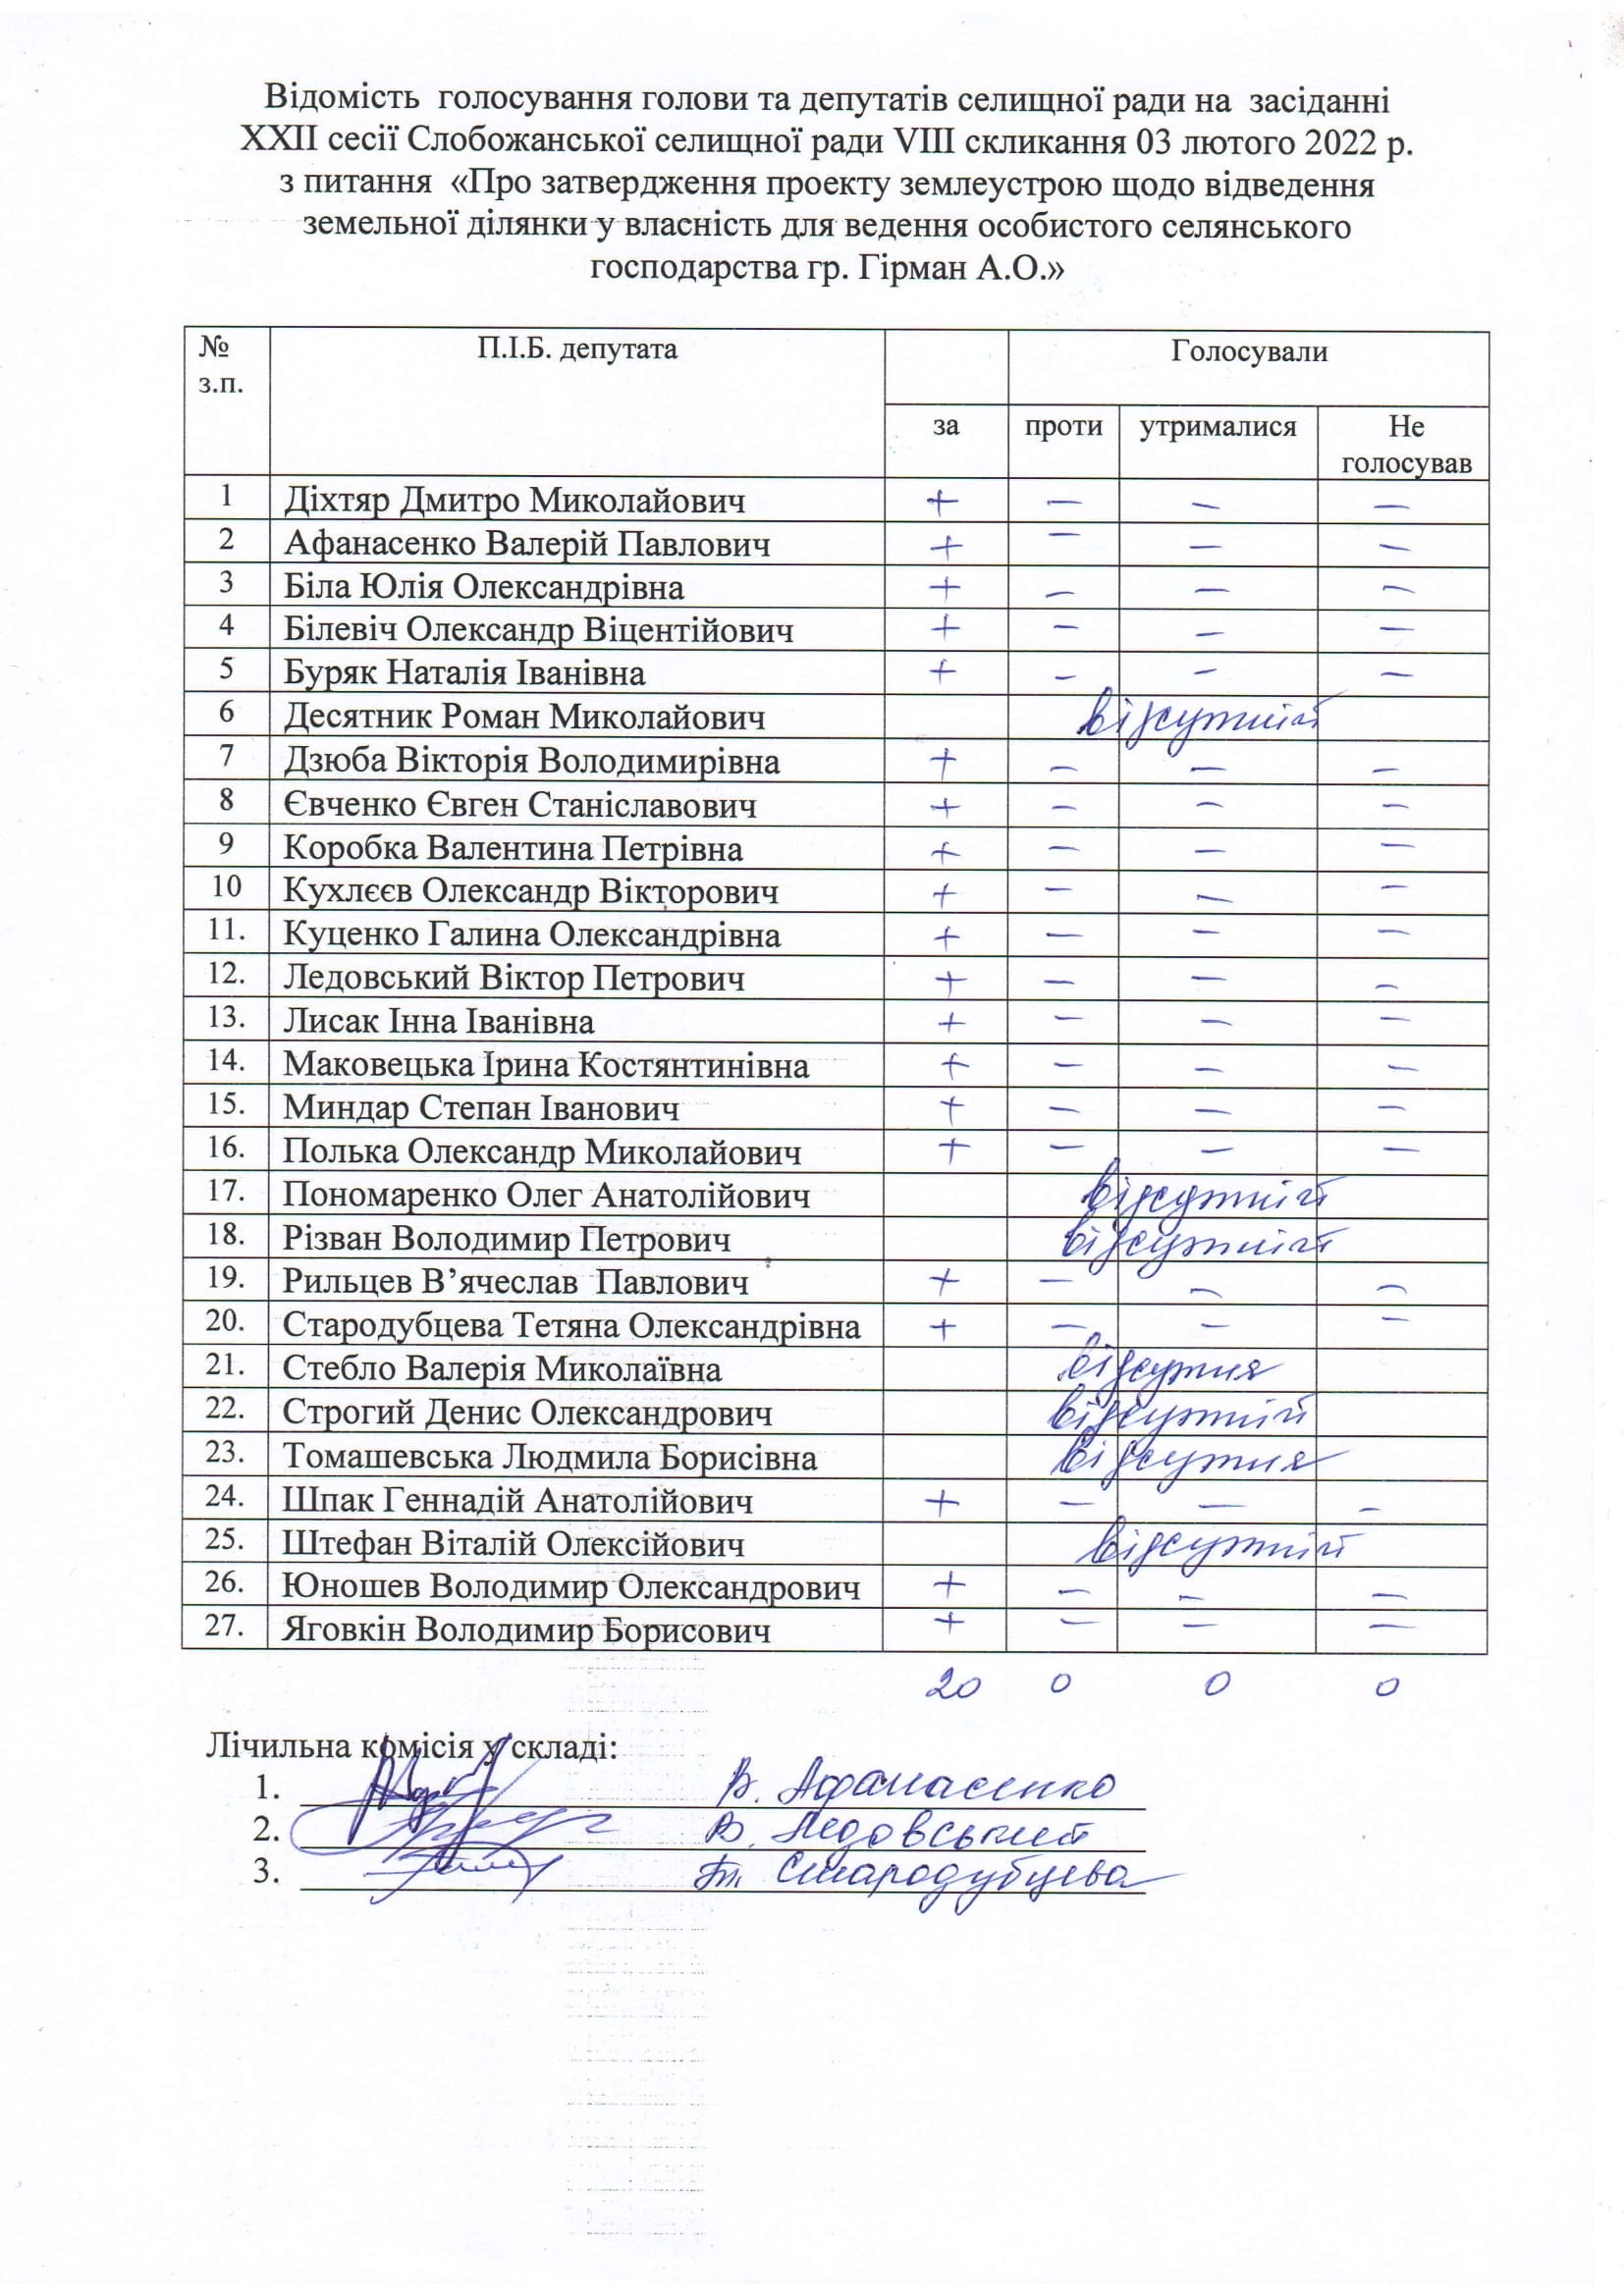 Відомість голосування голови та депутатів селищної ради на засіданні
XXII сесії Слобожанської селищної ради VIII скликання 03 лютого 2022 р.
з питання «Про затвердження проекту землеустрою щодо відведення
земельної ділянки у власність для ведення особистого селянського
господарства гр. Гірман А.О.»
№ П.І.Б. депутата Голосували
з.п.
за проти утрималися Не
голосував
1 Діхтяр Дмитро Миколайович + — — —
2 Афанасенко Валерій Павлович + — — —
3 Біла Юлія Олександрівна + — — —
4 Білевіч Олександр Віцентійович + — — —
5 Буряк Наталія Іванівна + — — —
6 Десятник Роман Миколайович відсутній
7 Дзюба Вікторія Володимирівна + — — —
8 Євченко Євген Станіславович + — — —
9 Коробка Валентина Петрівна + — — —
10 Кухлєєв Олександр Вікторович + — — —
11. Куценко Галина Олександрівна + — — —
12. Ледовський Віктор Петрович + — — —
13. Лисак Інна Іванівна + — — —
14. Маковецька Ірина Костянтинівна + — — —
15. Миндар Степан Іванович + — — —
16. Полька Олександр Миколайович + — — —
17. Пономаренко Олег Анатолійович відсутній
18. Різван Володимир Петрович відсутній
19. Рильцев В’ячеслав Павлович + — — —
20. Стародубцева Тетяна Олександрівна + — — —
21. Стебло Валерія Миколаївна відсутня
22. Строгий Денис Олександрович відсутній
23. Томашевська Людмила Борисівна відсутня
24. Шпак Геннадій Анатолійович + — — —
25. Штефан Віталій Олексійович відсутній
26. Юношев Володимир Олександрович + — — —
27. Яговкін Володимир Борисович + — — —
20 0 0 0
Лічильна комісія у складі:
1. В. Афанасенко
2. В. Ледовський
3. Т. Стародубцева